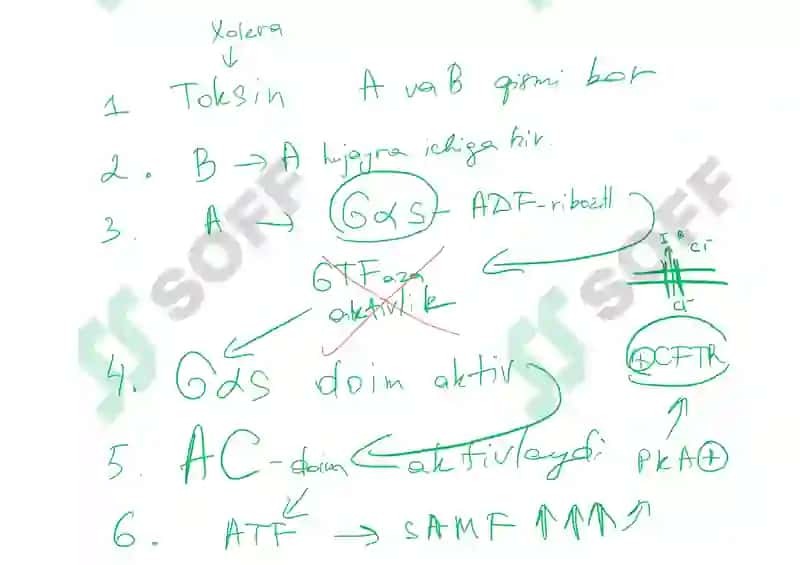 Xolera
↓
1 Toksin A va B qismi bor
2. B → A hujayra ichiga kir.
3. A → Gαs - ADF-ribozil
GTFaza
aktivlik
I R Cl⁻
Cl⁻
⊕CFTR
4. Gαs doim aktiv
5. AC-doim aktivlaydi PKA⊕
6. ATF → sAMF ↑↑↑
SOFF
SOFF
SOFF